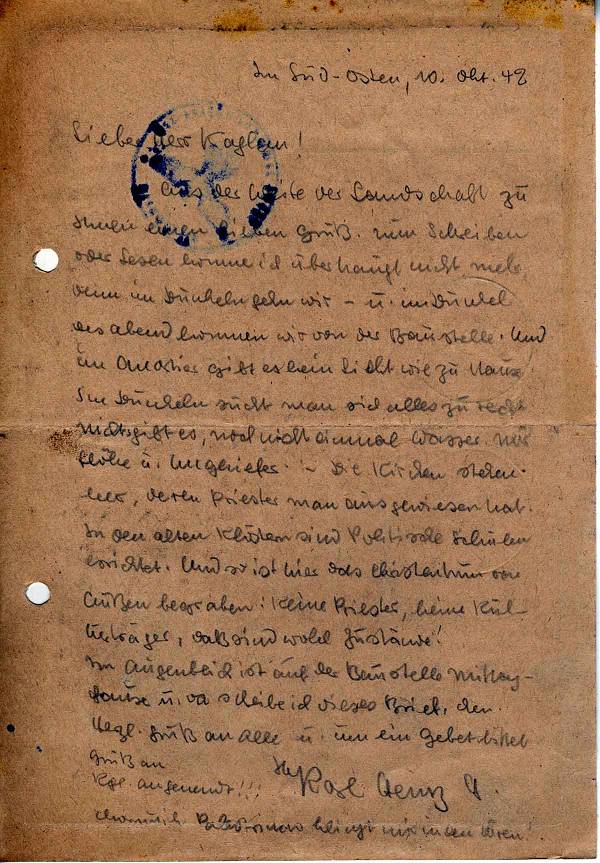 Im Süd-Osten, 10. Okt. 42
Lieber Herr Kaplan!
Aus der Weite der Landschaft zu
Ihnen einen lieben Gruß. Zum Schreiben
oder Lesen komme ich überhaupt nicht mehr,
denn im Dunkeln gehn wir – u. im Dunkel
des abend kommen wir von der Baustelle. Und
im Quartier gibt es kein Licht wie zu Hause.
Im Dunkeln sucht man sich alles zu recht
nichts gibt es, noch nicht einmal Wasser. Nur
Flöhe u. Ungeziefer. – Die Kirchen stehen
leer, deren Priester man ausgewiesen hat.
In den alten Klöstern sind Politische Schulen
errichtet. Und so ist hier das Christentum von
Außen begraben: Keine Priester, keine Kul-
turträger, daß sind wohl Zustände!
Im Augenblick ist auf der Baustelle Mittag-
pause u. da schreibe ich dieses Briefchen.
Herzl. Gruß an alle u. um ein Gebet bittet
Gruß an
Ihr Karl Heinz
Kpl. angenendt!!!
klingt mir in den Ohren!